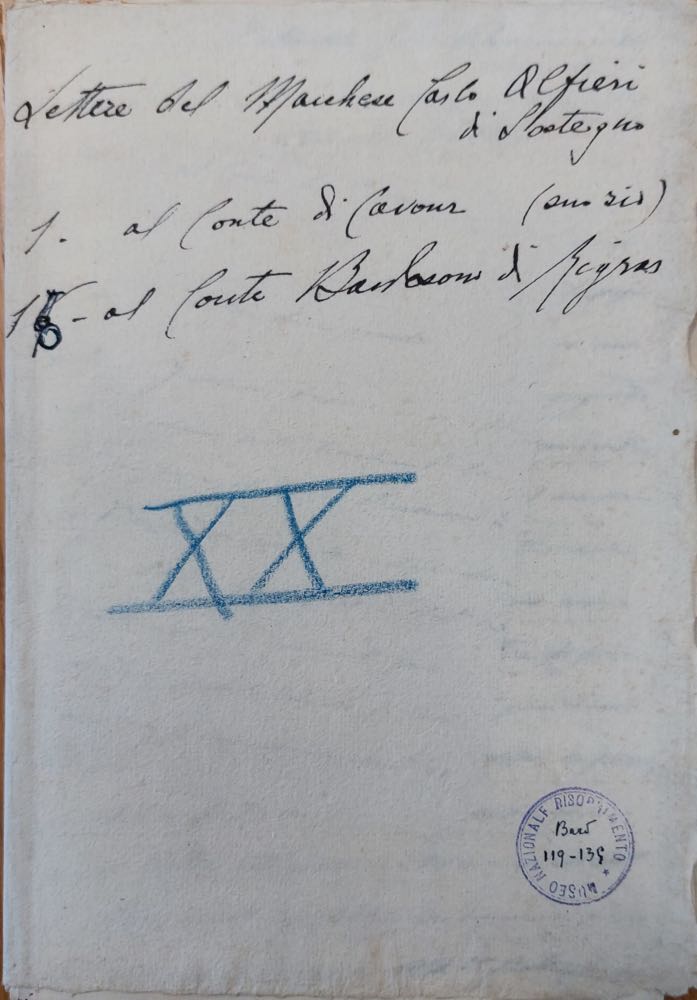 Lettere del Marchese Carlo Alfieri
di Sostegno
1. al Conte di Cavour (suo zio)
16 - al Conte Bardesono di Rigras
XX
MUSEO NAZIONALE RISORGIMENTO *
Bard
119-135